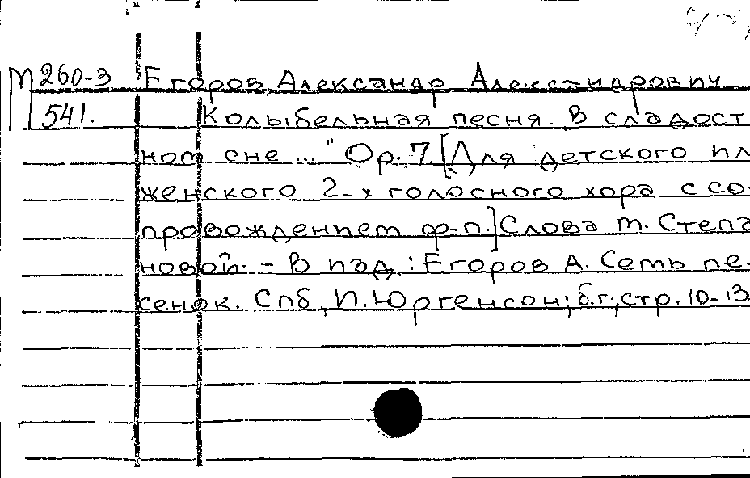 М 260-3 Егоров, Александр Александрович
541. Колыбельная песня. В сладост
ном сне..." Ор. 7 [Для детского или
женского 2-х голосного хора с со-
провождением ф-п.] Слова М. Степа
новой. - В изд.: Егоров А. Семь пе-
сенок. Спб, П. Юргенсон, б.г., стр. 10-13